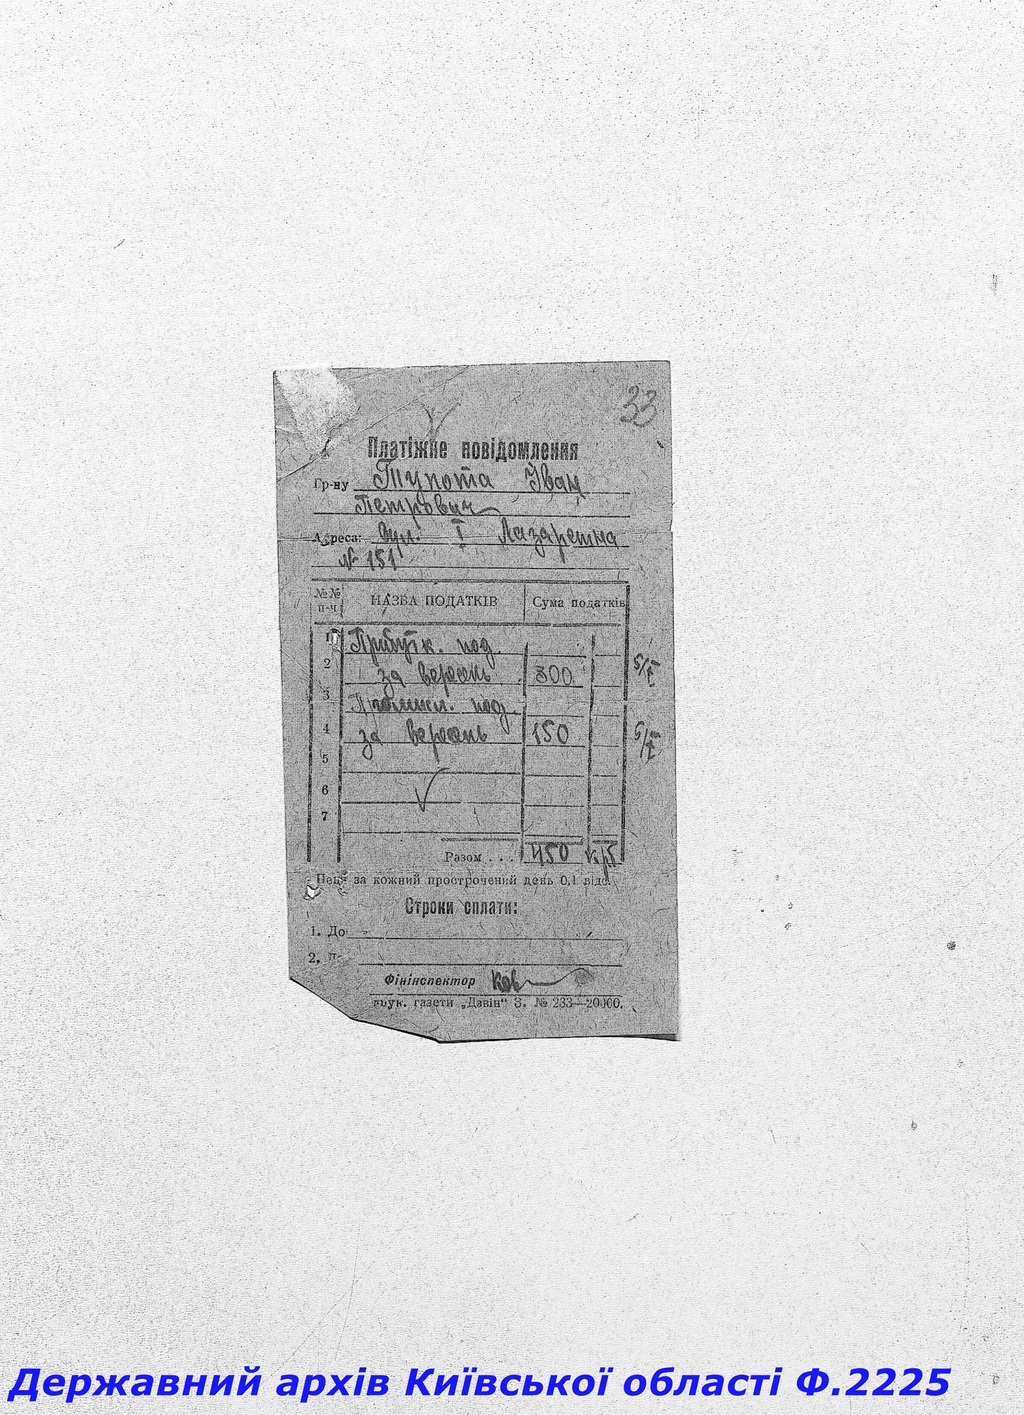 33
Платіжне повідомлення
Гр-ну Тупота Іван
Петрович
Адреса: вул. I Лазаретна
№ 151
№№ п-ч НАЗВА ПОДАТКІВ Сума податків
1 Прибутк. под.
2 за вересень 300
3 под.
4 за вересень 150
5
6
7
Разом . . . 450 крб
Пеня за кожний прострочений день 0,1 відс.
Строки сплати:
1. До
2.
Фінінспектор
друк. газети „Дзвін“ З. № 233—20000.
Державний архів Київської області Ф.2225